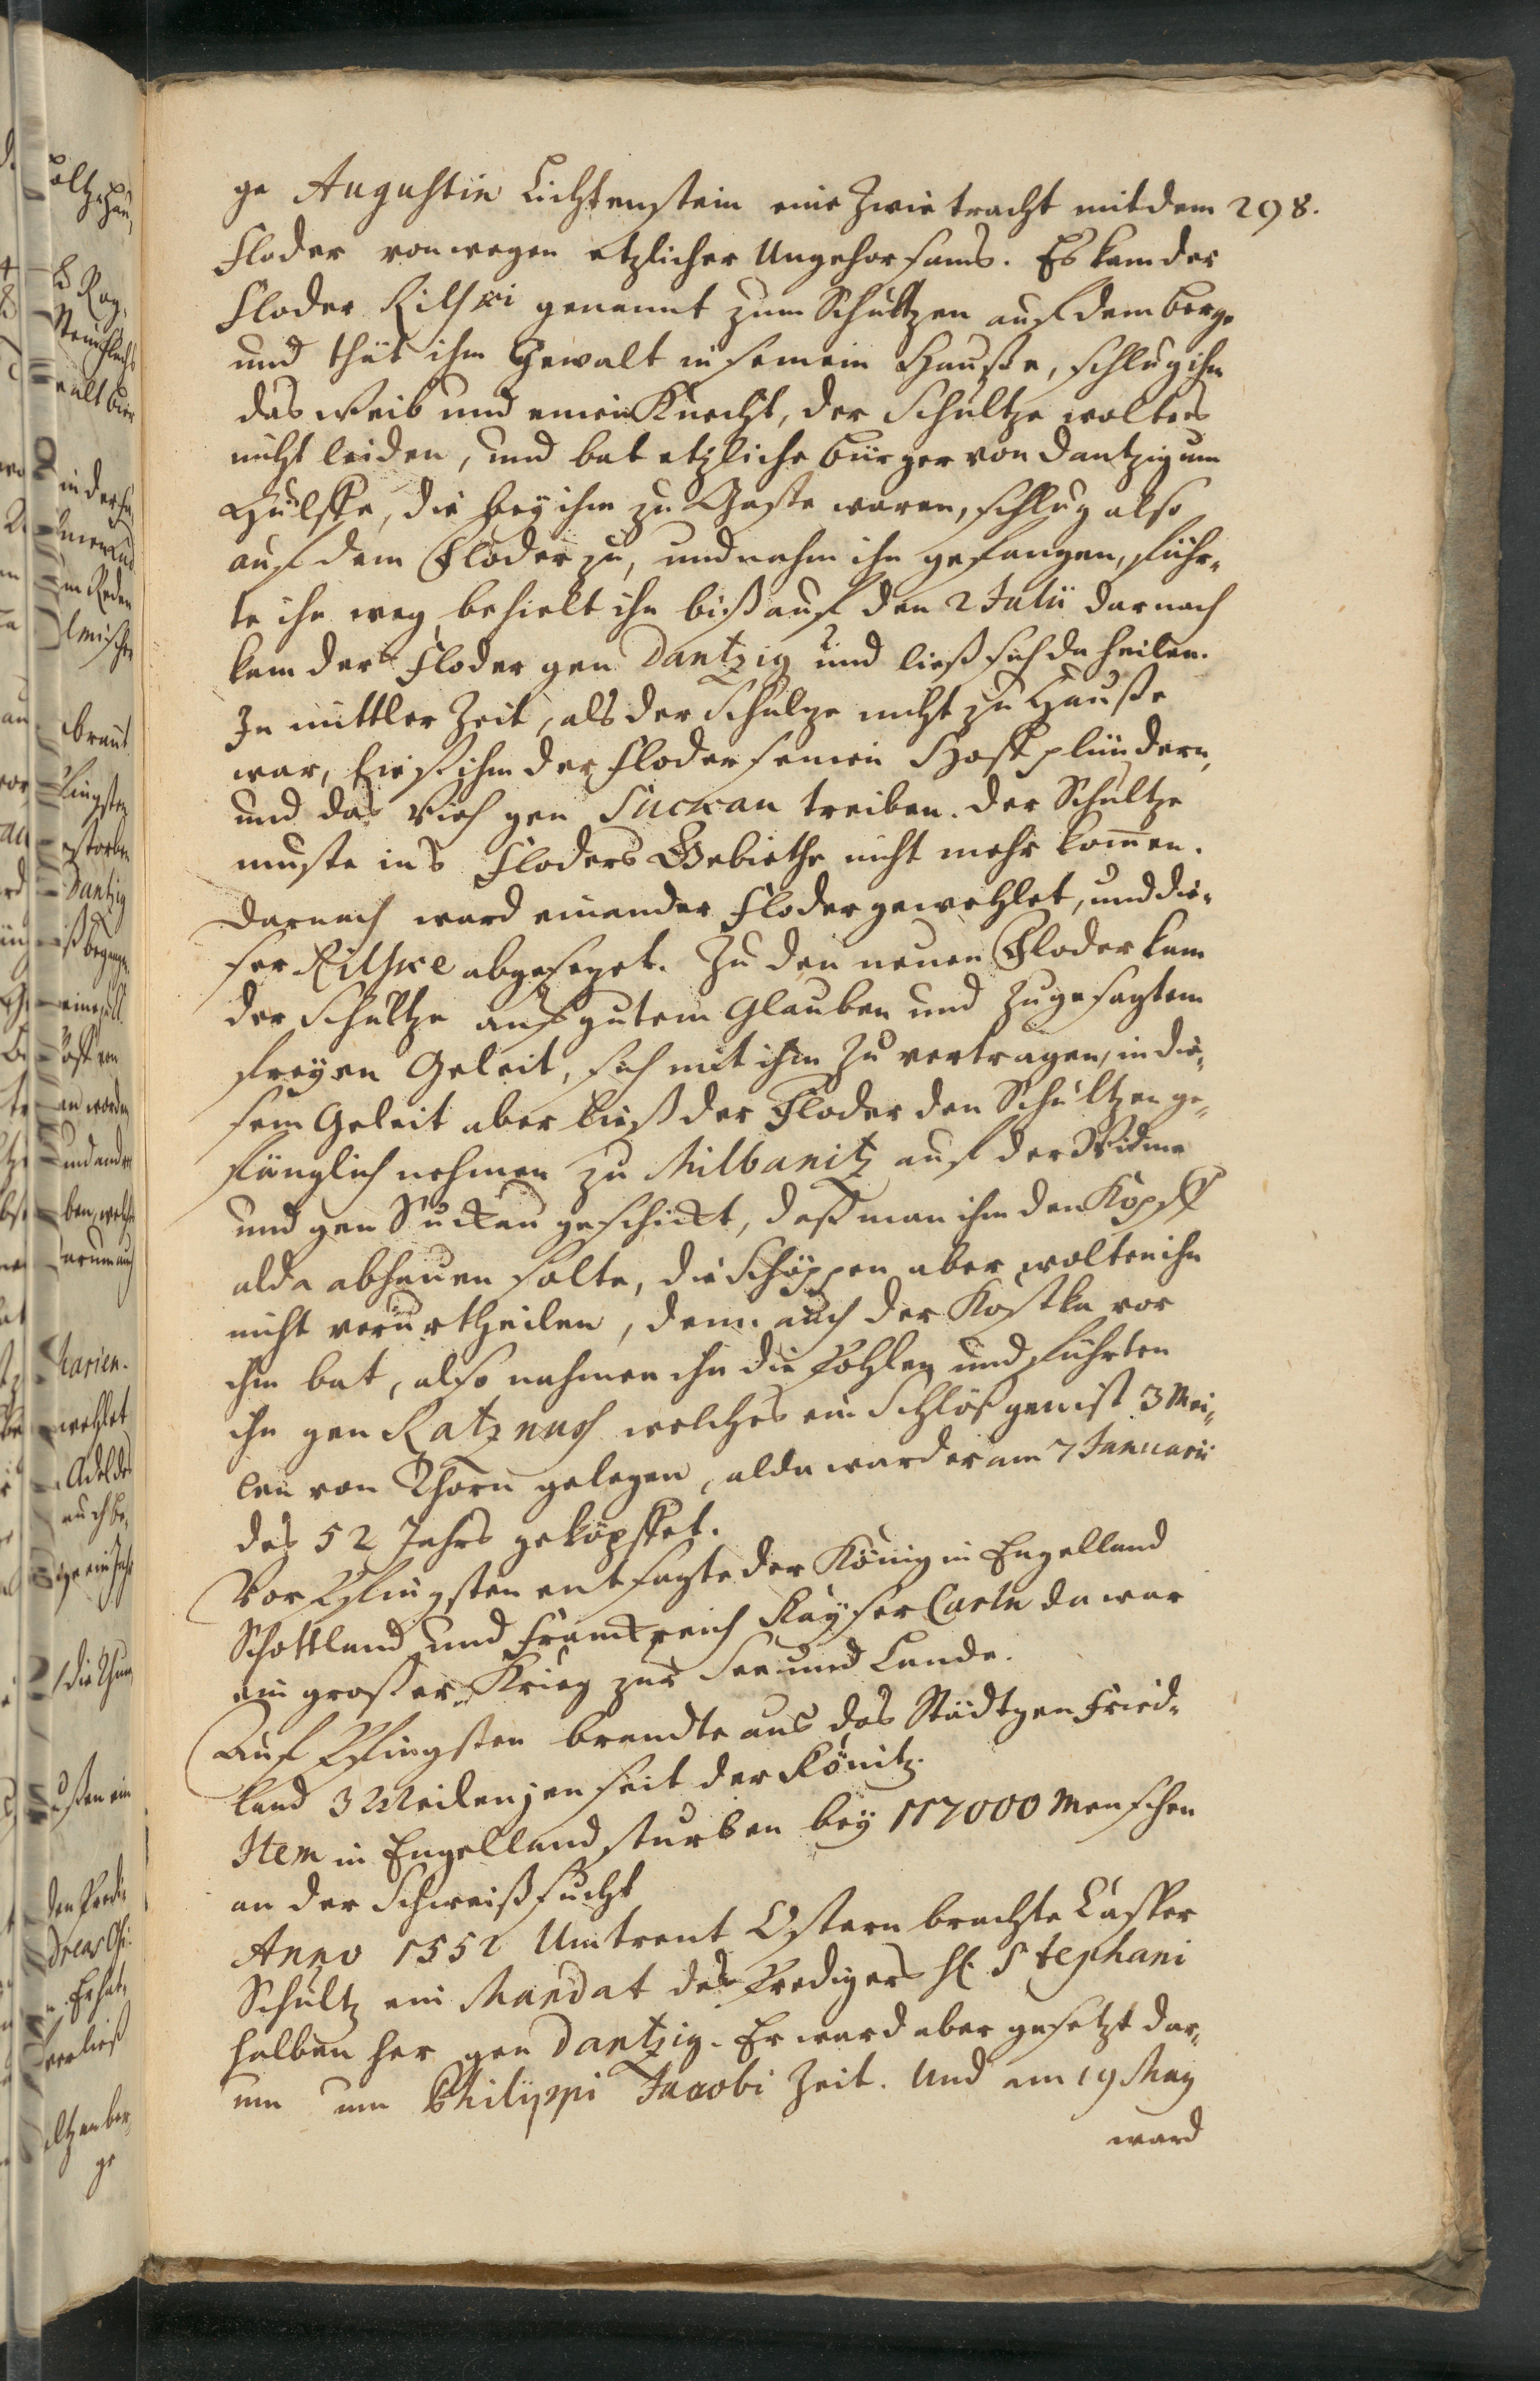 298.
ge Augustin Lichtenstein eine Zwietracht mit dem
Floder von wegen etzlicher Ungehorsams. Es kam der
Floder Rilski genannt zum Schultzen auf dem berge
und thät ihm Gewalt in seinein Hauße, schlug ihm
das weib und einen Knecht, der Schultze wolt es
nicht leiden, und bat etzliche bürger von Dantzig um
Hülffe, die bey ihm zu Gaste waren, schlug also
auf dem Floder zu, und nahm ihn gefangen, führ-
te ihn weg behielt ihn biß auf den 2 Julii darnach
kam der Floder gen Dantzig und ließ sich da heilen.
In mittler Zeit, als der Schulze nicht zu Hauße
war, ließ ihm der Floder seinen Hoff plündern,
und das Vieh gen Suckau treiben. der Schultze
muste ins Floders Gebiethe nicht mehr komen.
Darnach ward ein ander Floder gewehlet, und die-
ser Rilske abgesezet. Zu den neuen Floder kam
der Schultze auf gutem Glauben und zugesagtem
freyen Geleit, sich mit ihm zu vertragen, in die-
sem Geleit aber ließ der Floder den Schultzen ge-
fänglich nehmen zu Milbanitz auf der Widme
und gen Suckau geschickt, daß man ihm den Kopff
alda abhauen solte, die Schöppen aber wolten ihn
nicht verurtheilen, denn auch der Kostka vor
ihm bat, also nahmen ihn die Pohlen und führten
ihn gen Ratznus welches ein Schloß gen ist 3 Mei-
len von Thorn gelegen, alda ward er am 7 Januarii
des 52 Jahrs geköpffet.
Vor Pfingsten entsagte der König in Engelland
Schottland und Franckreich Kayser Carln da war
ein großer Krieg zur See und Lande.
Auf Pfingsten brandte aus das Städtgen Fried-
land 3 Meilen jenseit der Könitz.
Item in Engelland sturben bey 117000 Menschen
an der Schweißsucht
Anno 1552 Umtrent Ostern brachte Casper
Schultz ein Mandat des Predigers H. Stephani
halben her gen Dantzig. Er ward aber gesetzt dar-
um um Philippi Jacobi Zeit. Und am 19 May
ward